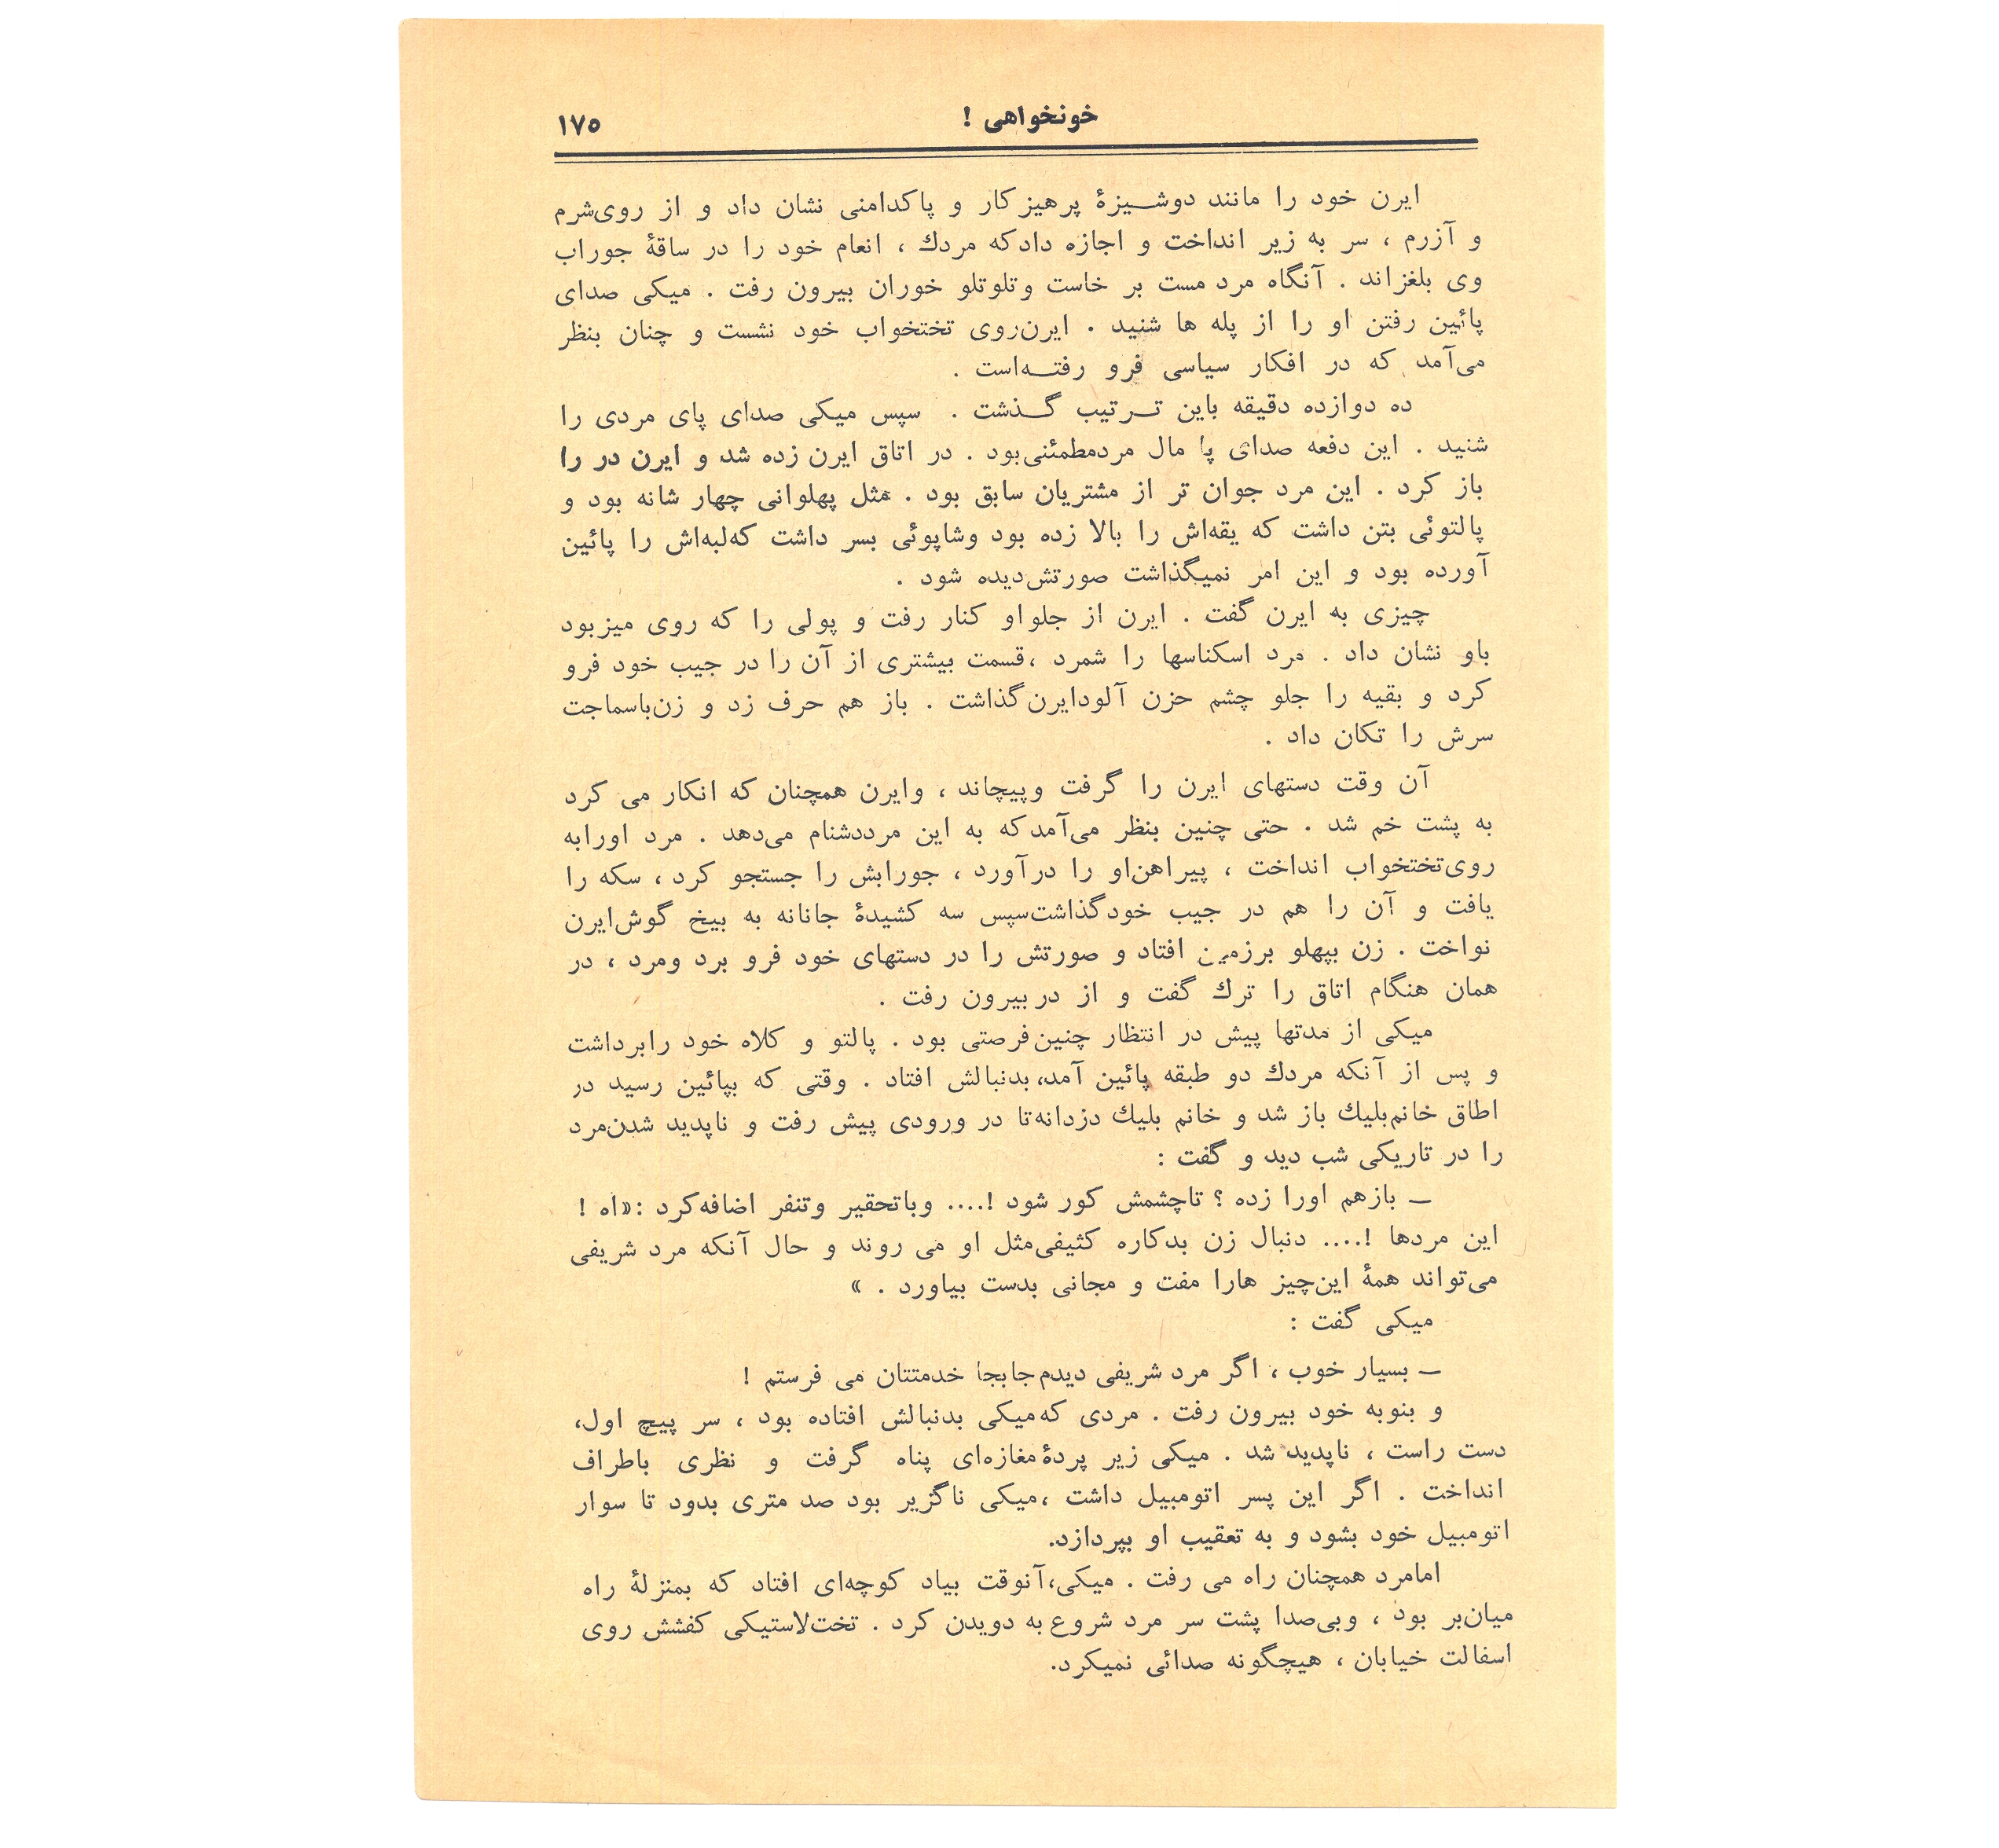 خونخواهی !
۱۷۵
ایرن خود را مانند دوشیزهٔ پرهیزکار و پاکدامنی نشان داد و از روی‌شرم
و آزرم ، سر به زیر انداخت و اجازه داد که مردك ، انعام خود را در ساقهٔ جوراب
وی بلغزاند . آنگاه مرد مست بر خاست وتلوتلو خوران بیرون رفت . میکی صدای
پائین رفتن او را از پله ها شنید . ایرن‌روی تختخواب خود نشست و چنان بنظر
می‌آمد که در افکار سیاسی فرو رفته‌است .
ده دوازده دقیقه باین ترتیب گذشت . سپس میکی صدای پای مردی را
شنید . این دفعه صدای پا مال مردمطمئنی‌بود . در اتاق ایرن زده شد و ایرن در را
باز کرد . این مرد جوان تر از مشتریان سابق بود . مثل پهلوانی چهار شانه بود و
پالتوئی بتن داشت که یقه‌اش را بالا زده بود وشاپوئی بسر داشت که‌لبه‌اش را پائین
آورده بود و این امر نمیگذاشت صورتش‌دیده شود .
چیزی به ایرن گفت . ایرن از جلواو کنار رفت و پولی را که روی میزبود
باو نشان داد . مرد اسکناسها را شمرد ،قسمت بیشتری از آن را در جیب خود فرو
کرد و بقیه را جلو چشم حزن آلودایرن‌گذاشت . باز هم حرف زد و زن‌باسماجت
سرش را تکان داد .
آن وقت دستهای ایرن را گرفت وپیچاند ، وایرن همچنان که انکار می کرد
به پشت خم شد . حتی چنین بنظر می‌آمدکه به این مرددشنام می‌دهد . مرد اورابه
روی‌تختخواب انداخت ، پیراهن‌او را درآورد ، جورابش را جستجو کرد ، سکه را
یافت و آن را هم در جیب خودگذاشت‌سپس سه کشیدهٔ جانانه به بیخ گوش‌ایرن
نواخت . زن بپهلو برزمین افتاد و صورتش را در دستهای خود فرو برد ومرد ، در
همان هنگام اتاق را ترك گفت و از در بیرون رفت .
میکی از مدتها پیش در انتظار چنین‌فرصتی بود . پالتو و کلاه خود رابرداشت
و پس از آنکه مردك دو طبقه پائین آمد، بدنبالش افتاد . وقتی که بپائین رسید در
اطاق خانم‌بلیك باز شد و خانم بلیك دزدانه‌تا در ورودی پیش رفت و ناپدید شدن‌مرد
را در تاریکی شب دید و گفت :
— بازهم اورا زده ؟ تاچشمش کور شود !.... وباتحقیر وتنفر اضافه‌کرد :«اه !
این مردها !.... دنبال زن بدکاره کثیفی‌مثل او می روند و حال آنکه مرد شریفی
می‌تواند همهٔ این‌چیز هارا مفت و مجانی بدست بیاورد . »
میکی گفت :
— بسیار خوب ، اگر مرد شریفی دیدم‌جابجا خدمتتان می فرستم !
و بنوبه خود بیرون رفت . مردی که‌میکی بدنبالش افتاده بود ، سر پیچ اول،
دست راست ، ناپدید شد . میکی زیر پردهٔ مغازه‌ای پناه گرفت و نظری باطراف
انداخت . اگر این پسر اتومبیل داشت ،میکی ناگزیر بود صد متری بدود تا سوار
اتومبیل خود بشود و به تعقیب او بپردازد.
امامرد همچنان راه می رفت . میکی،آنوقت بیاد کوچه‌ای افتاد که بمنزلهٔ راه
میان‌بر بود ، وبی‌صدا پشت سر مرد شروع به دویدن کرد . تخت‌لاستیکی کفشش روی
اسفالت خیابان ، هیچگونه صدائی نمیکرد.